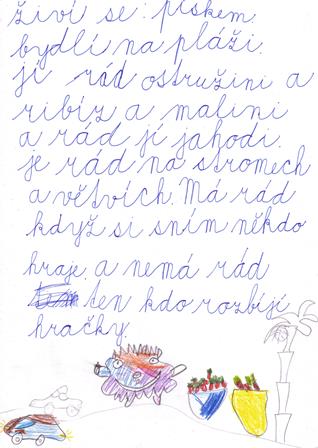 živí se: pískem.
bydlí na pláži.
jí rád ostružini a
ribíz a malini
a rád jí jahodi.
je rád na stromech
a větvích. Má rád
když si sním někdo
hraje. a nemá rád
ten kdo rozbíjí
hračky